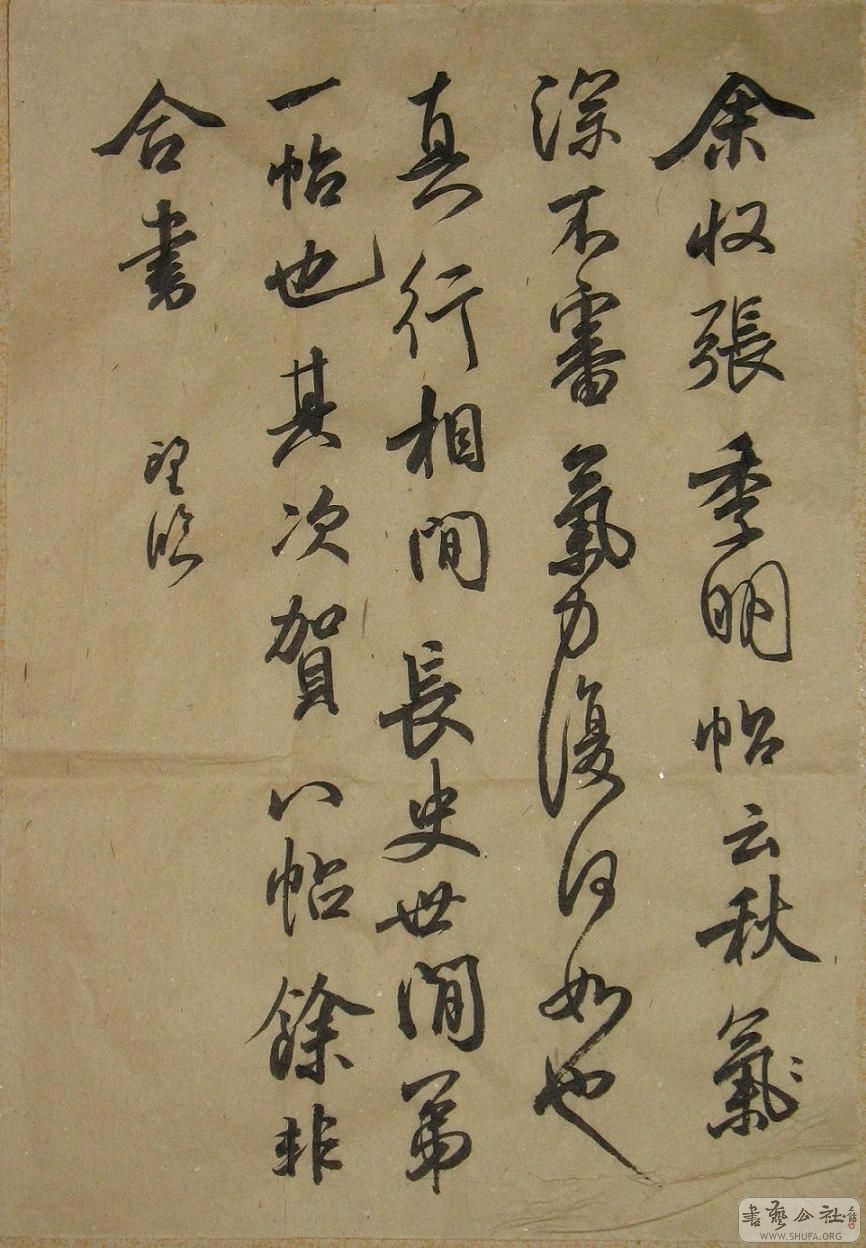 余收張季明帖云秋氣
深不審氣力復何如也
真行相間長史世間第
一帖也其次賀八帖餘非
合書
臨
書藝公社
WWW.SHUFA.ORG